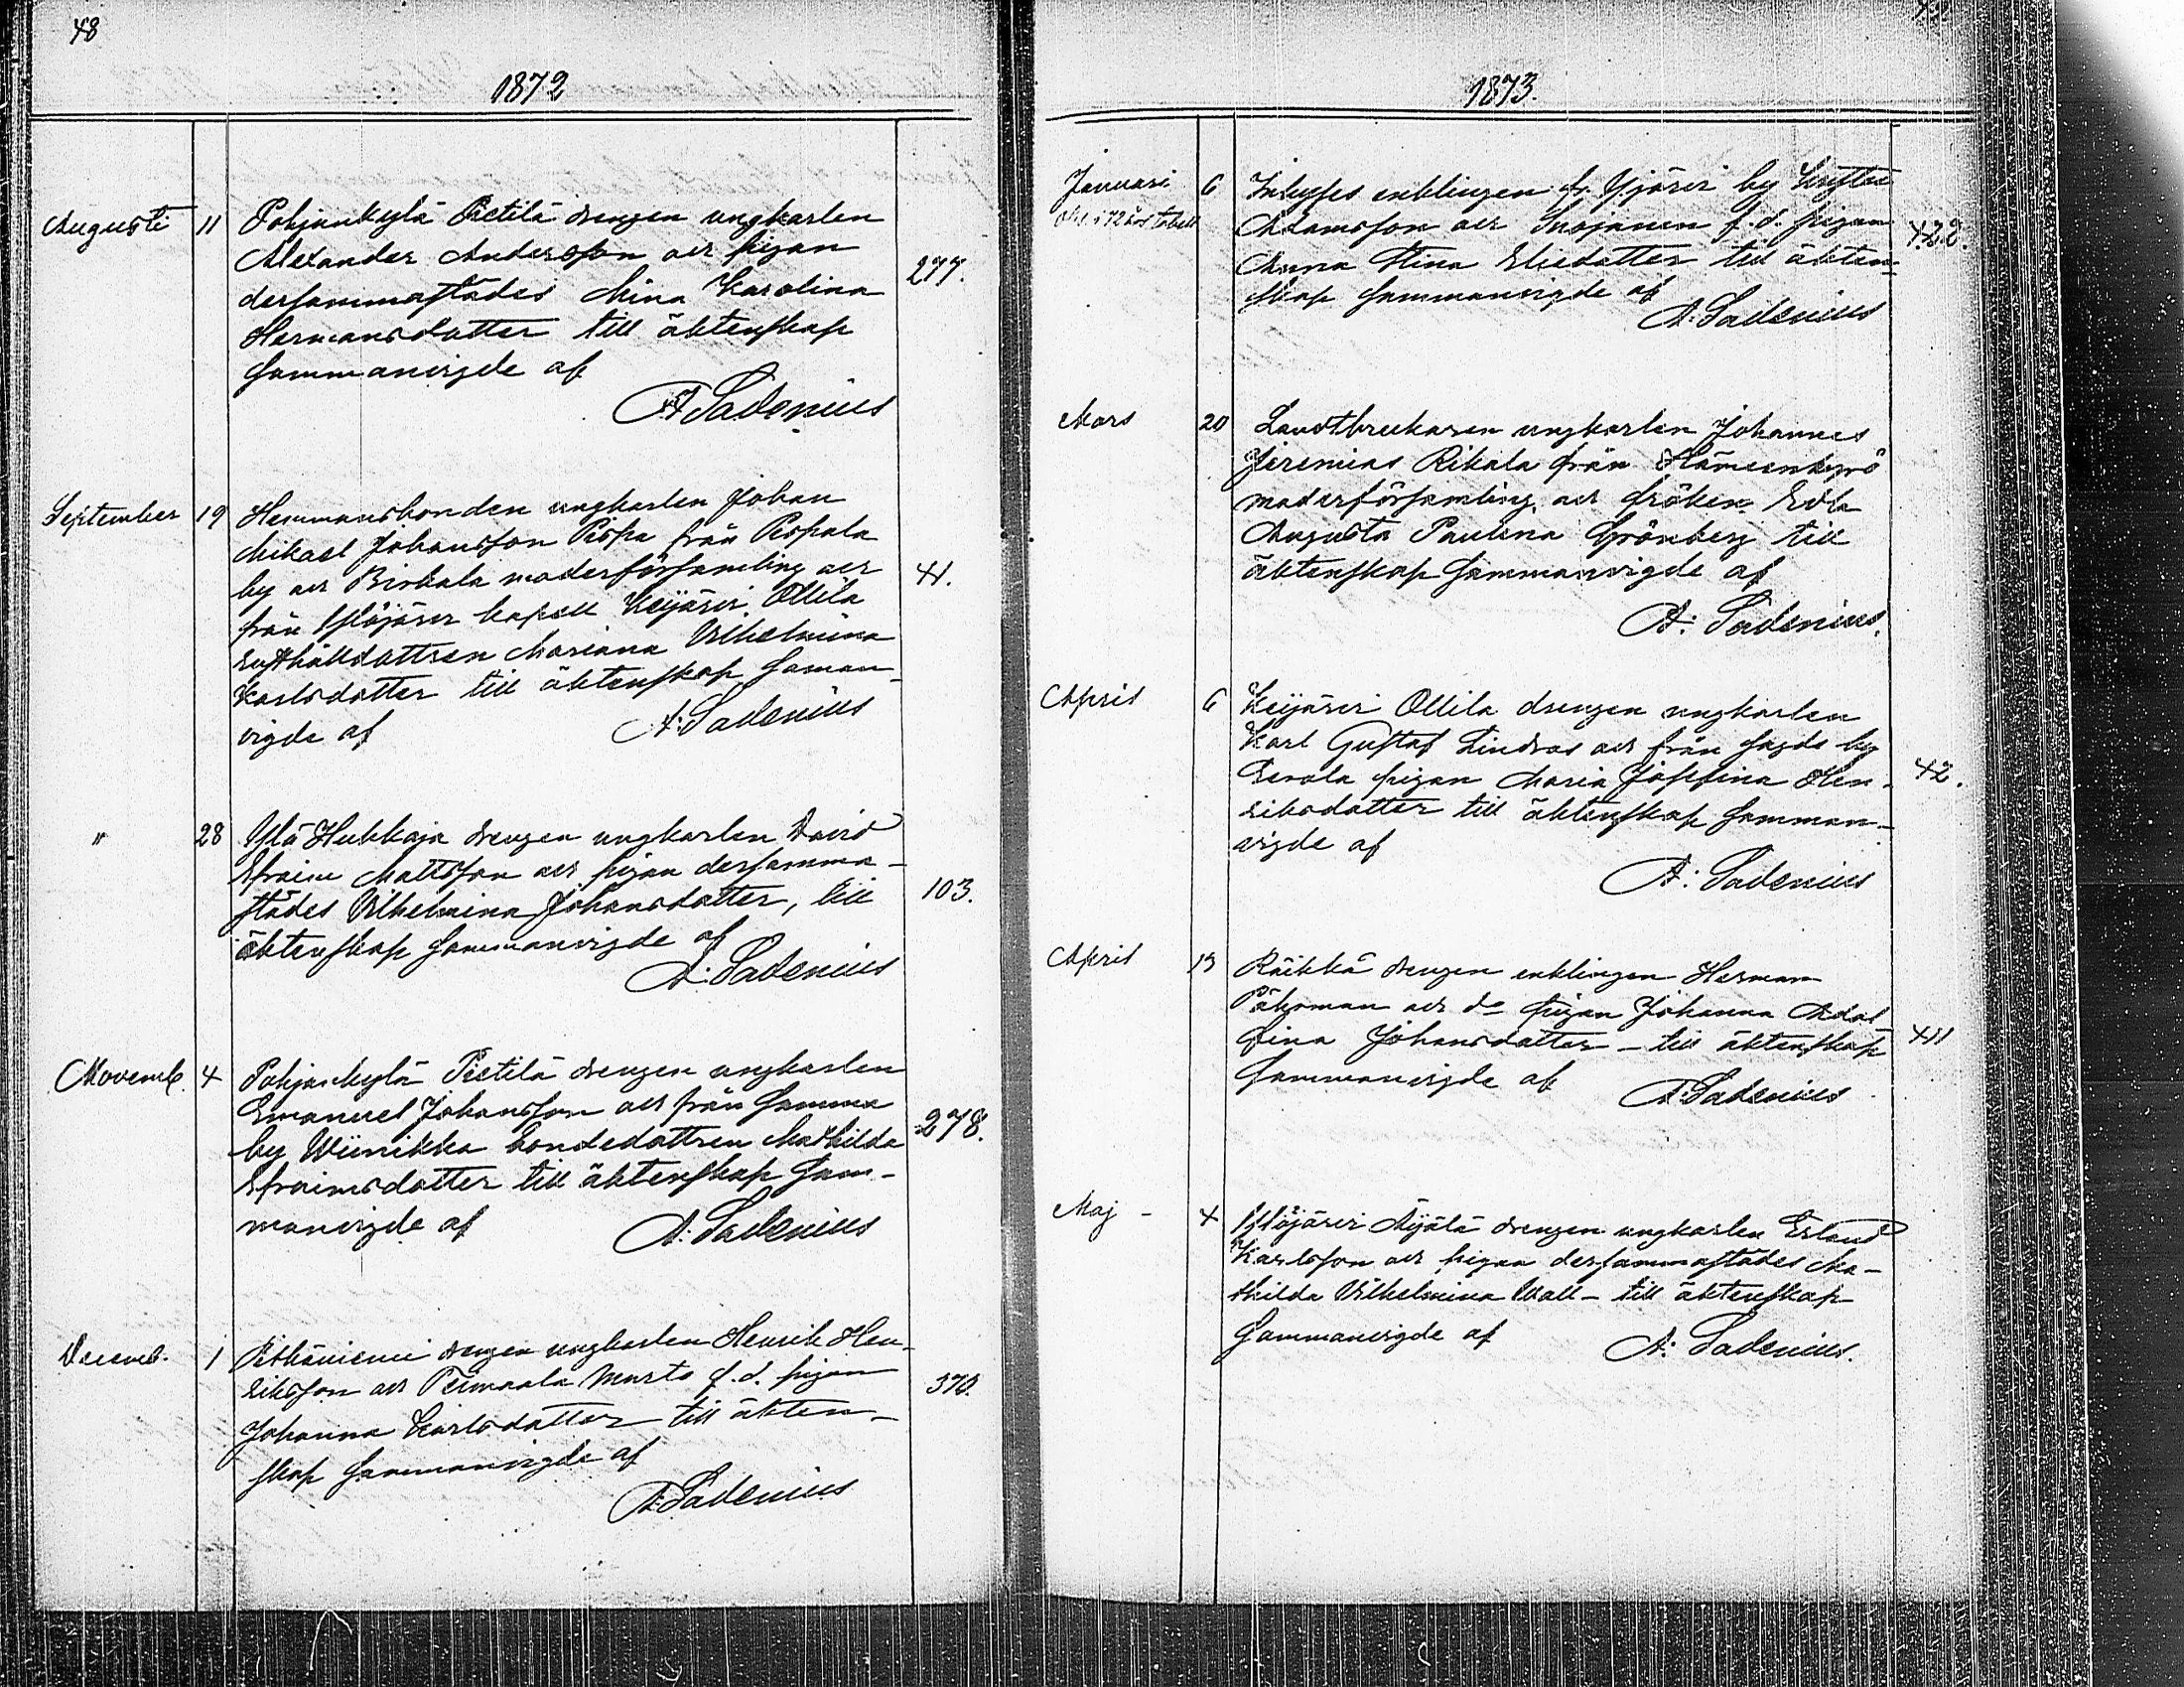 48
1872
Augusti 11 Pohjankylä Pietilä drengen ungkarlen
Alexander Andersson och pigan
dersammastädes Mina Karolina 277.
Hermansdotter till äktenskap
sammanvigde af
A. Sadenius
September 19 Hemmansbonden ungkarlen Johan
Mikael Johansson Pispa från Pispala
by och Birkala moderförsamling och 41.
från Ylöjärvi kapell Keijärvi Ollila
rusthålldottren Mariana Vilhelmina
Karlsdotter till äktenskap samman-
vigde af A. Sadenius
" 28 Ylä Hukkaja drengen ungkarlen David
Efraim Mattsson och pigan dersamma-
städes Vilhelmina Johansdotter, till 103.
äktenskap sammanvigde af
A. Sadenius
Novemb. 4 Pohjankylä Pietilä drengen ungkarlen
Emanuel Johansson och från samma 278.
by Wiinikka bondedottren Mathilda
Efraimsdotter till äktenskap sam-
manvigde af A. Sadenius
Decemb. 1 Pitkäniemi drengen ungkarlen Henrik Hen-
riksson och Teimaala Mursto f.d. pigan 370.
Johanna Karlsdotter till äkten-
skap sammanvigde af
A. Sadenius
1873.
Januari 6 Inhyses enklingen fr. Yjärvi by Krister
Adamsson och f.d. pigan 422.
Anna Stina Eliedotter till äkten-
skap sammanvigde af
A. Sadenius
Mars 20 Landtbrukaren ungkarlen Johannes
Jeremias Rikala från Hämeenkyrö
moderförsamling och fröken Edla
Augusta Paulina Grönberg till
äktenskap sammanvigde af
A. Sadenius.
April 6 Keijärvi Ollila drengen ungkarlen
Karl Gustaf Lindroos och från sagde by
Eerola pigan Maria Josefina Hen- 42.
riksdotter till äktenskap samman-
vigde af
A. Sadenius
April 13 Räikkä drengen enklingen Herman
Påhrman och do pigan Johanna Adol
fina Johansdotter - till äktenskap
sammanvigde af A. Sadenius
Maj - 4 Ylöjärvi Äijälä drengen ungkarlen Erland
Karlsson och pigan dersammastädes Ma-
thilda Vilhelmina Wall - till äktenskap
sammanvigde af A. Sadenius.